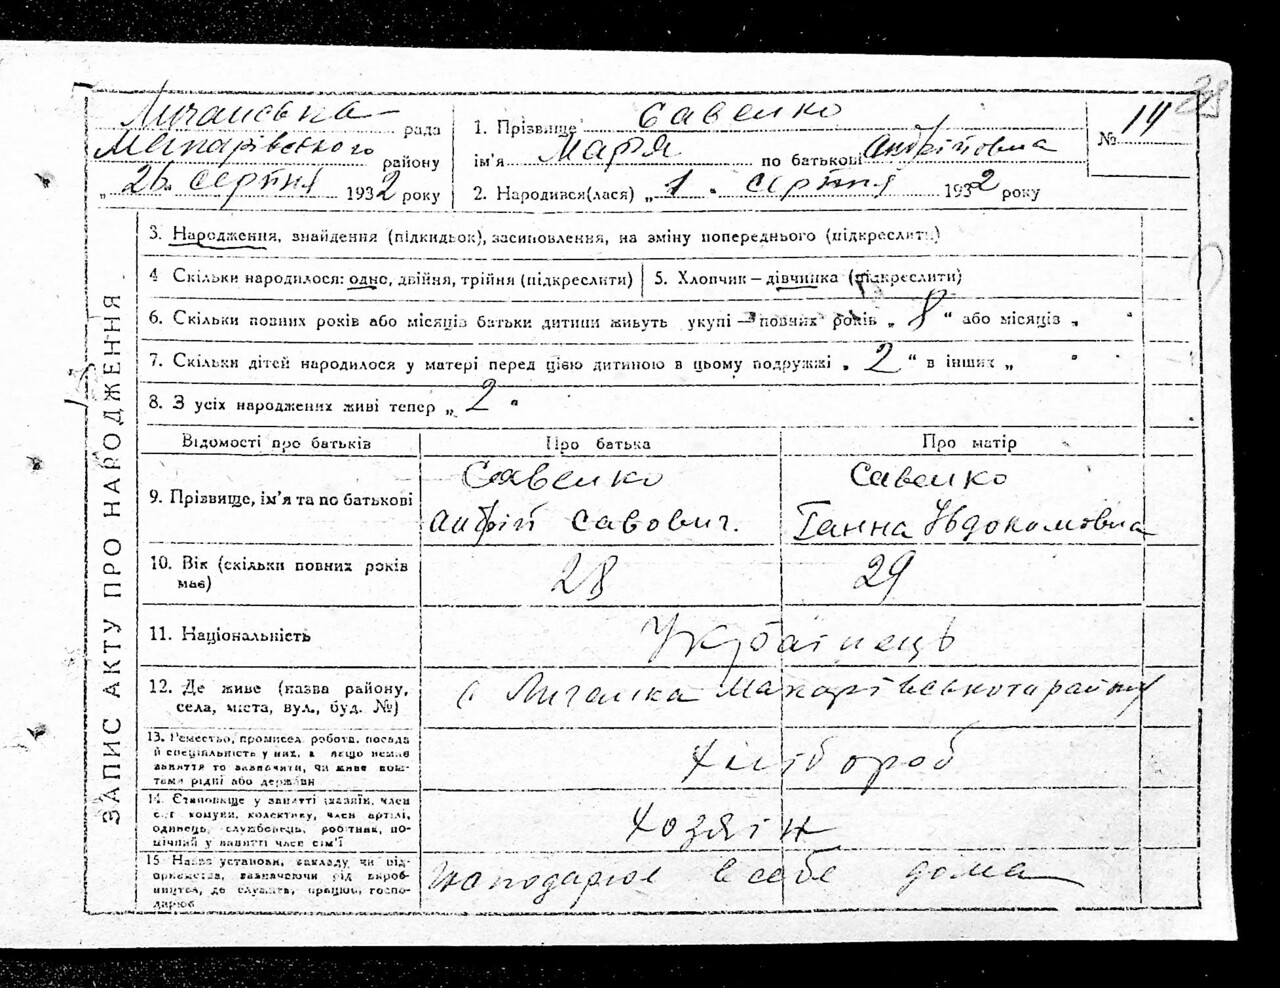 29
Личанська рада
Макарівського району
„ 26 серпня 1932 року
1. Прізвище Савенко
ім'я Марія по батькові Андріївна
2. Народився(лася) „ 1 " серпня 1932 року
№ 14
ЗАПИС АКТУ ПРО НАРОДЖЕННЯ
3. Народження, знайдення (підкидьок), засиновлення, на зміну попереднього (підкреслити)
4 Скільки народилося: одно, двійня, трійня (підкреслити)
5. Хлопчик — дівчинка (підкреслити)
6. Скільки повних років або місяців батьки дитини живуть укупі — повних років „ 8 " або місяців „ "
7. Скільки дітей народилося у матері перед цією дитиною в цьому подружжі „ 2 " в інших „ "
8. З усіх народжених живі тепер „ 2 "
Відомості про батьків Про батька Про матір
9. Прізвище, ім'я та по батькові
Савенко
Андрій Савович.
Савенко
Ганна Овдокимовна
10. Вік (скільки повних років
має)
28
29
11. Національність Українець
12. Де живе (назва району,
села, міста, вул., буд. №)
с Личанка Макарівського району
13. Ремество, промисел, робота, посада
й спеціяльність у них, а якщо немає
заняття то зазначити, чи живе кош-
тами рідні або держави
Хлібороб
14. Становище у занятті (хазяїн, член
с.-г комуни, колективу, член артілі,
одинець, службовець, робітник, по-
мічний у занятті член сім'ї
Хозяїн
15 Назва установи, закладу, чи під-
приємства, зазначаючи рід вироб-
ництва, де служить, працює, госпо-
дарює
Господарює в себе дома